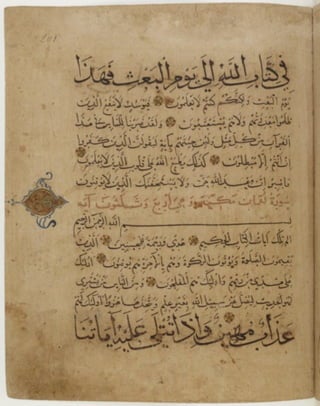 في كتاب الله إلى يوم البعث فهذا
يوم البعث ولكنكم كنتم لا تعلمون فيومئذ لا ينفع الذين
ظلموا معذرتهم ولا هم يستعتبون ولقد ضربنا للناس في هذا
القرآن من كل مثل ولئن جئتهم بآية ليقولن الذين كفروا
إن أنتم إلا مبطلون كذلك يطبع الله على قلوب الذين لا يعلمون
فاصبر إن وعد الله حق ولا يستخفنك الذين لا يوقنون
سورة لقمان مكية وهي أربع وثلثون آية
بسم الله الرحمن الرحيم
الم تلك آيات الكتاب الحكيم هدى ورحمة للمحسنين الذين
يقيمون الصلوة ويؤتون الزكوة وهم بالآخرة هم يوقنون أولئك
على هدى من ربهم وأولئك هم المفلحون ومن الناس من يشتري
لهو الحديث ليضل عن سبيل الله بغير علم ويتخذها هزوا أولئك لهم
عذاب مهين وإذا تتلى عليه آياتنا